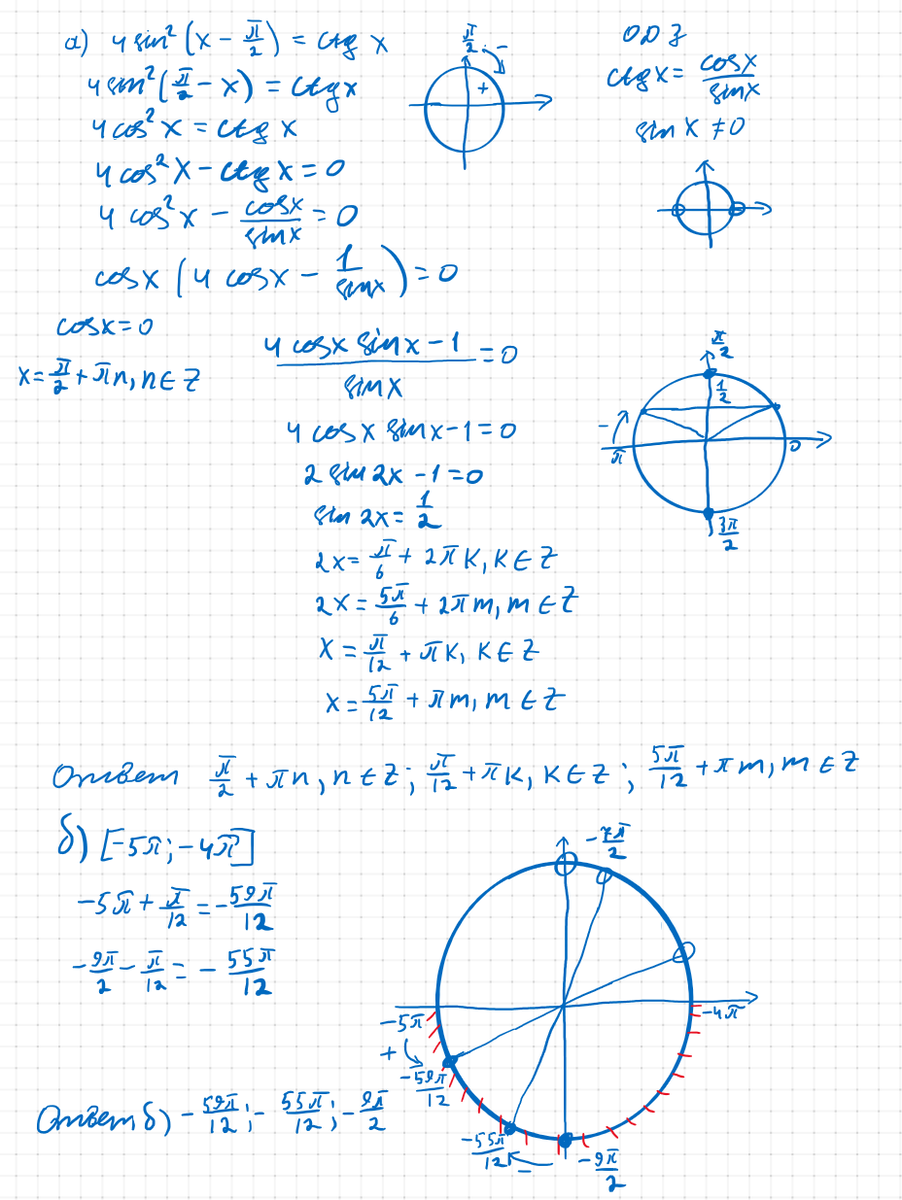 а) 4 sin² (x - π/2) = ctg x
4 sin² (π/2 - x) = ctg x
4 cos² x = ctg x
4 cos² x - ctg x = 0
4 cos² x - cos x / sin x = 0
cos x (4 cos x - 1 / sin x) = 0
cos x = 0
x = π/2 + πn, n ∈ Z
π/2 -
+
ОДЗ
ctg x = cos x / sin x
sin x ≠ 0
(4 cos x sin x - 1) / sin x = 0
4 cos x sin x - 1 = 0
2 sin 2x - 1 = 0
sin 2x = 1/2
2x = π/6 + 2πk, k ∈ Z
2x = 5π/6 + 2πm, m ∈ Z
x = π/12 + πk, k ∈ Z
x = 5π/12 + πm, m ∈ Z
π/2
1/2
-
π
0
3π/2
Ответ π/2 + πn, n ∈ Z; π/12 + πk, k ∈ Z; 5π/12 + πm, m ∈ Z
б) [-5π; -4π]
-5π + π/12 = -59π/12
-9π/2 - π/12 = -55π/12
-7π/2
-5π
-4π
+
-59π/12
-55π/12
-
-9π/2
Ответ б) -59π/12; -55π/12; -9π/2